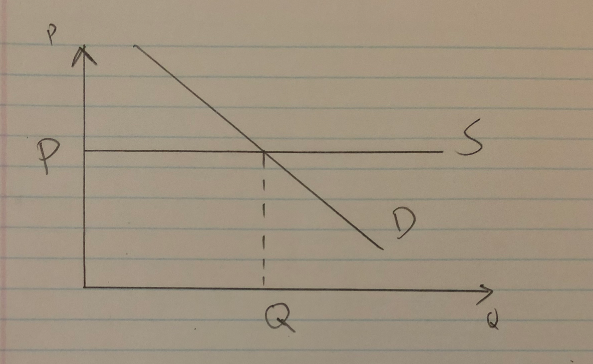 P
P
S
D
Q
Q